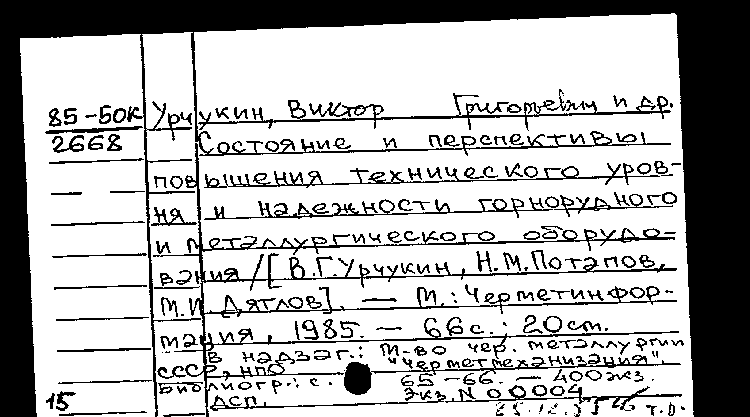 85-50к Урчукин, Виктор Григорьевич и др.
2668 Состояние и перспективы
повышения технического уров-
ня и надежности горнорудного
и металлургического оборудо-
вания /[В.Г.Урчукин, Н.М.Потапов,
М.И. Дяглов]. — М.: Черметинфор-
мация, 1985. — 66 с.; 20 см.
В надзаг.: М-во чер. металлургии
СССР, НПО "Черметмеханизация".
Библиогр.: с. 65-66. — 400 экз.
15 ДСП. Экз. N 00004